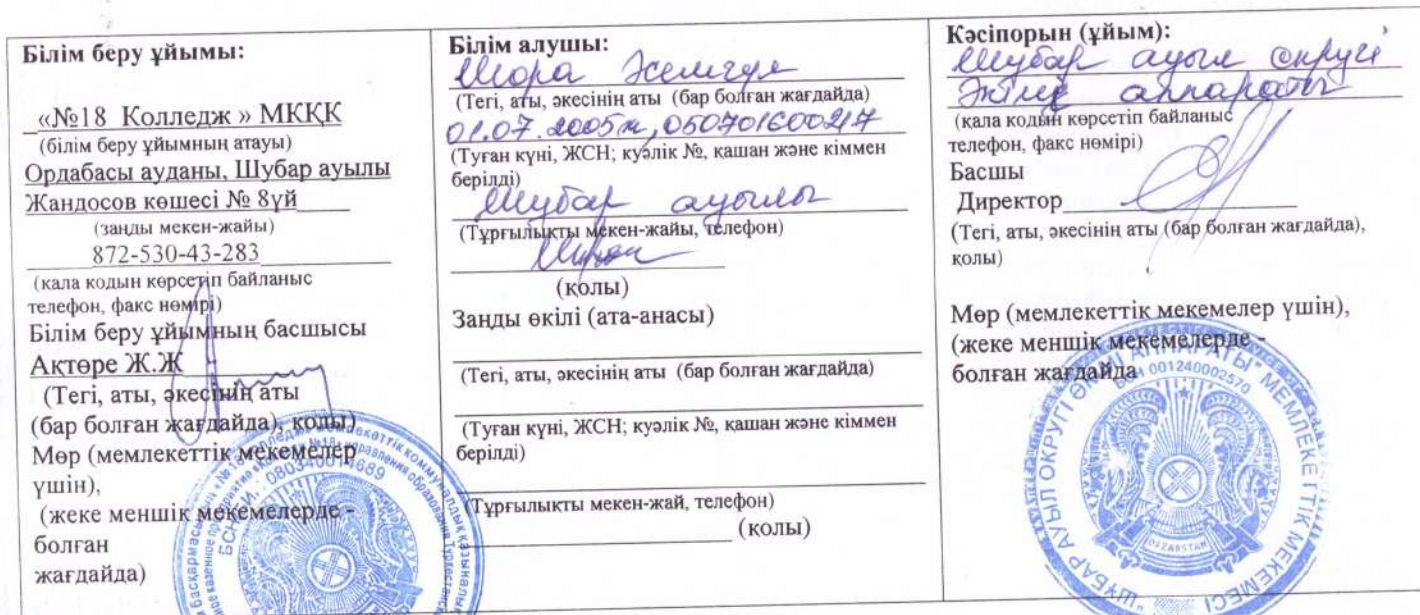 Білім беру ұйымы:
«№18 Колледж » МКҚК
(білім беру ұйымның атауы)
Ордабасы ауданы, Шубар ауылы
Жандосов көшесі № 8үй
(заңды мекен-жайы)
872-530-43-283
(қала кодын көрсетіп байланыс
телефон, факс нөмірі)
Білім беру ұйымның басшысы
Ақтөре Ж.Ж
(Тегі, аты, әкесінің аты
(бар болған жағдайда), қолы)
Мөр (мемлекеттік мекемелер
үшін),
(жеке меншік мекемелерде -
болған
жағдайда)
БСН/БИН. 080340014689
Білім алушы:
Шора
(Тегі, аты, әкесінің аты (бар болған жағдайда)
01.07.2005ж, 050701600217
(Туған күні, ЖСН; куәлік №, қашан және кіммен
берілді)
Шубар ауылы
(Тұрғылықты мекен-жайы, телефон)
(қолы)
Заңды өкілі (ата-анасы)
(Тегі, аты, әкесінің аты (бар болған жағдайда)
(Туған күні, ЖСН; куәлік №, қашан және кіммен
берілді)
(Тұрғылықты мекен-жай, телефон)
(қолы)
Кәсіпорын (ұйым):
Шубар ауыл округі
әкімі аппараты
(қала кодын көрсетіп байланыс
телефон, факс нөмірі)
Басшы
Директор
(Тегі, аты, әкесінің аты (бар болған жағдайда),
қолы)
Мөр (мемлекеттік мекемелер үшін),
(жеке меншік мекемелерде -
болған жағдайда
"ШҰБАР АУЫЛ ОКРУГІ ӘКІМІ АППАРАТЫ" МЕМЛЕКЕТТІК МЕКЕМЕСІ
БСН 001240002570
QAZAQSTAN